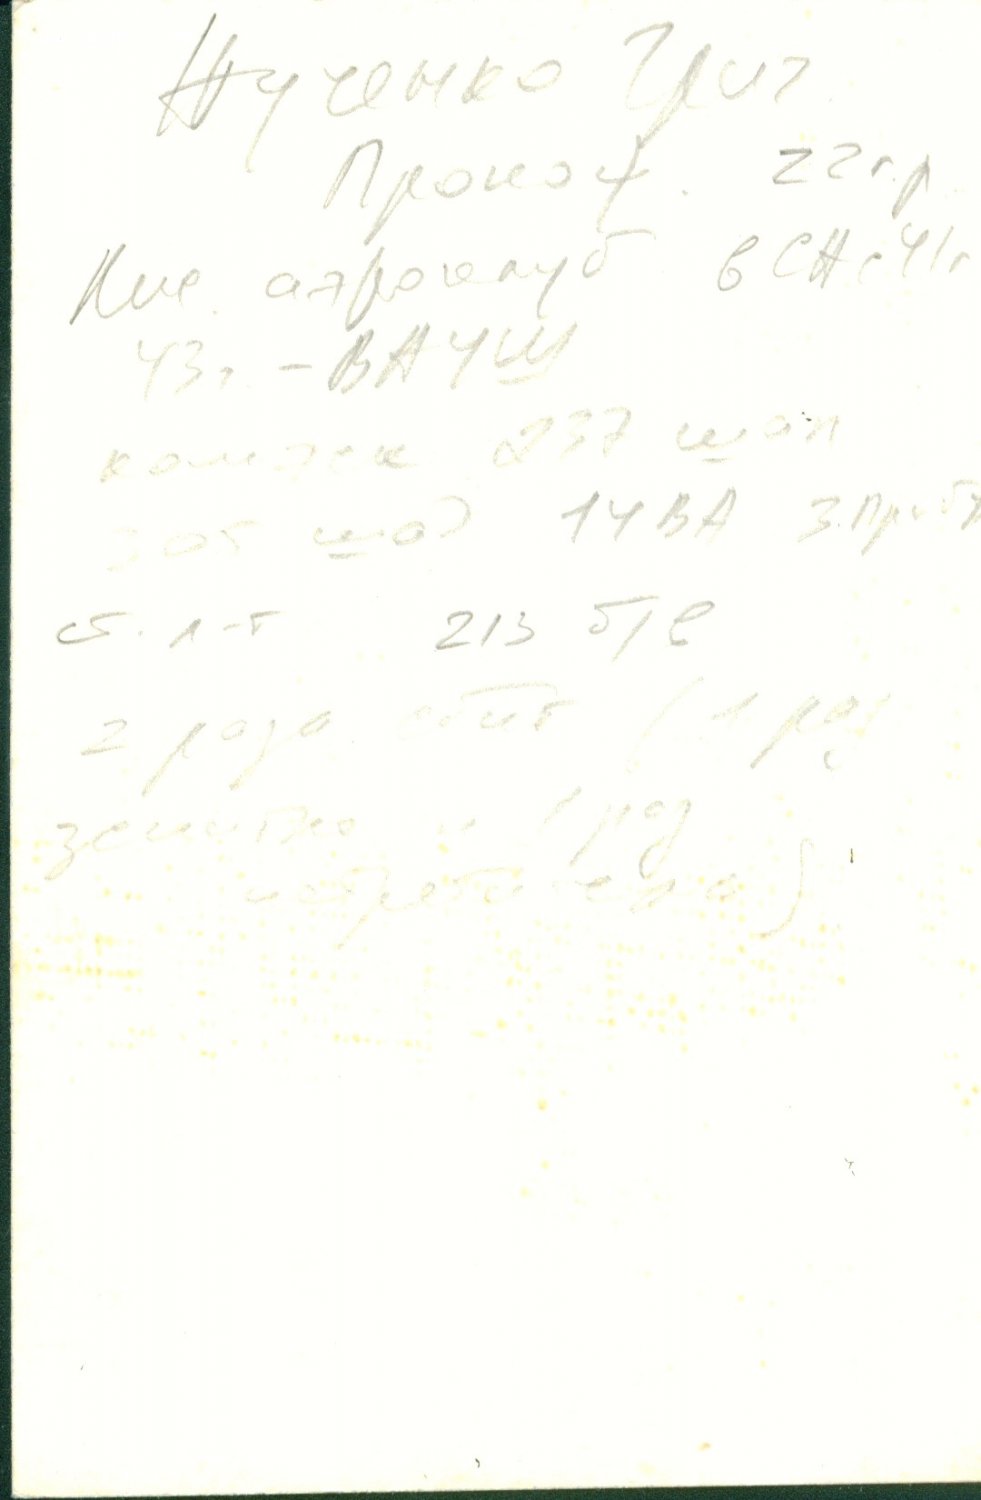 Жученко Григ.
Прокоф. 22 г.р.
Кие. аэроклуб в СА с 41г
43г. - ВАУШ
комэск 237 шап
305 шад 14 ВА 3.Приб
ст. л-т 213 б/в
2 раза сбит (1 раз
зенитка и 1 раз
истребителя)